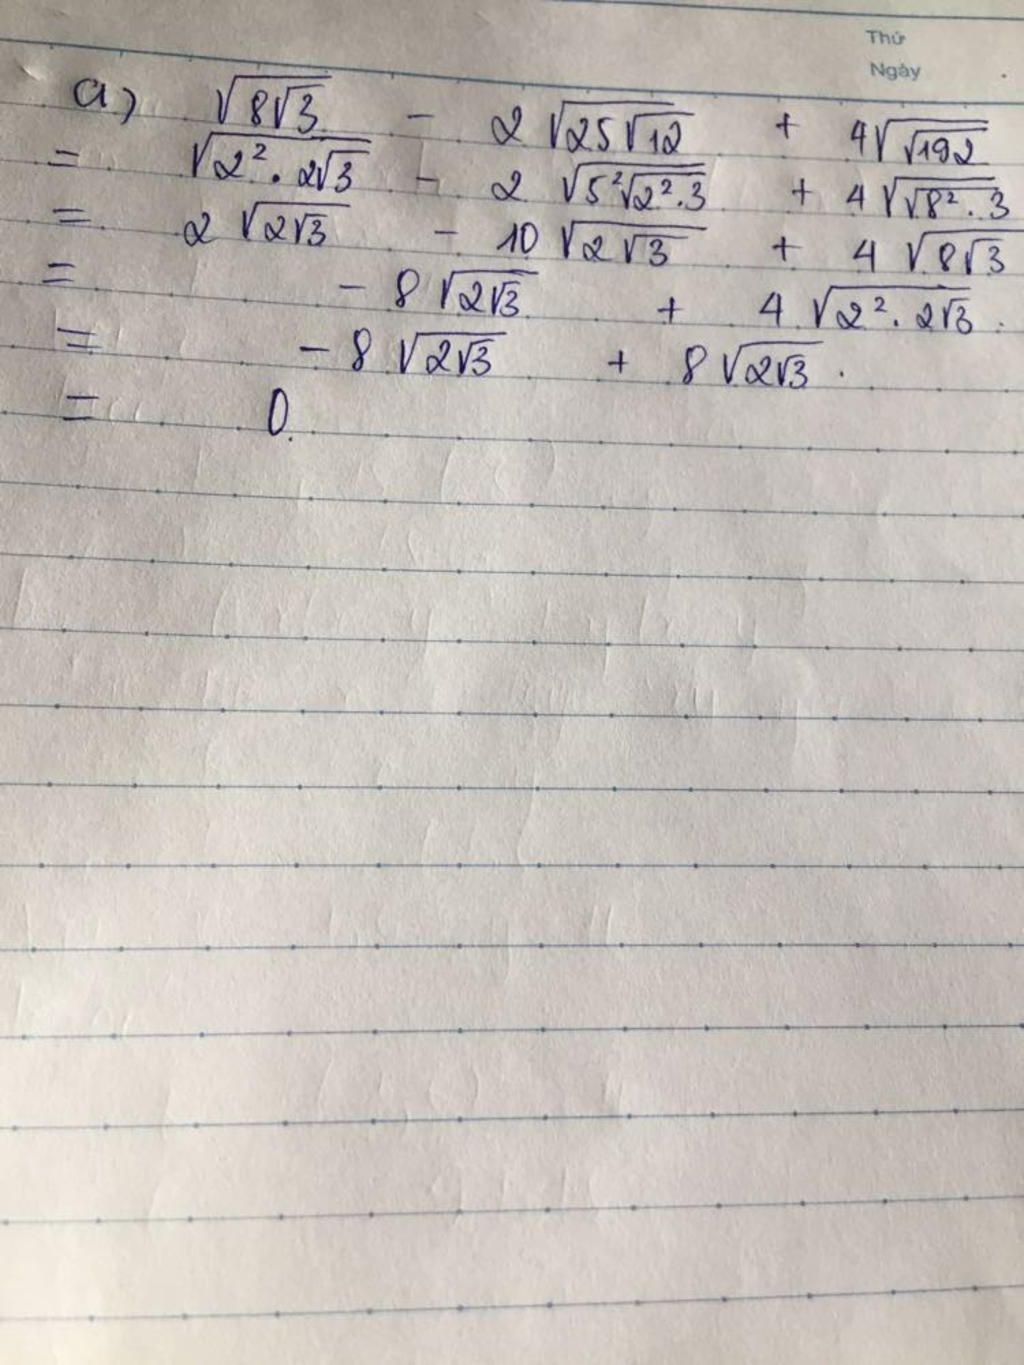 Thứ
Ngày
a) √(8√3) - 2√(25√12) + 4√(√192)
= √(2².2√3) - 2√(5²√(2².3)) + 4√(√(8².3))
= 2√(2√3) - 10√(2√3) + 4√(8√3)
= - 8√(2√3) + 4√(2².2√3).
= - 8√(2√3) + 8√(2√3).
= 0.